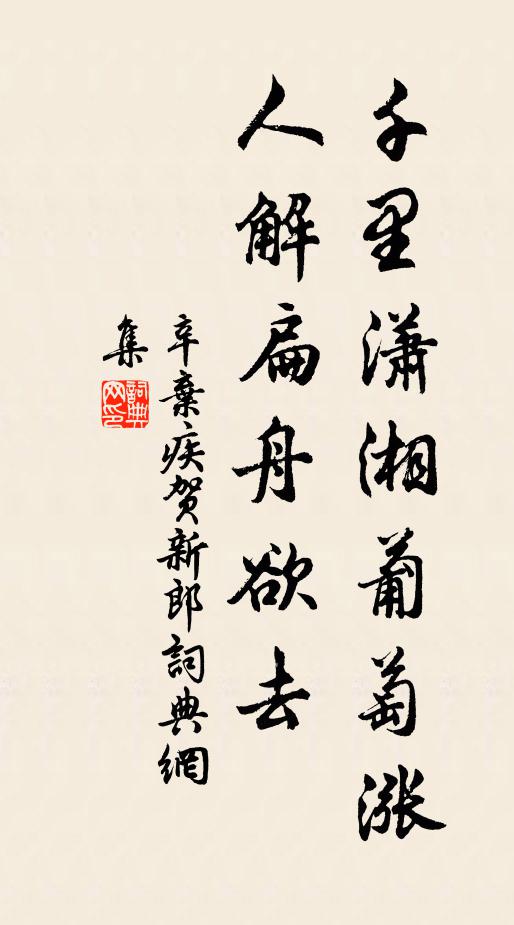 千里瀟湘葡萄漲
人解扁舟欲去
辛棄疾賀新郎詞典網
集
詞典
网印